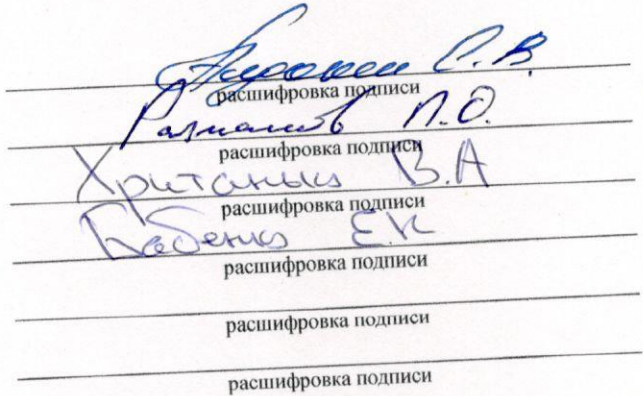 С.В.
расшифровка подписи
П.О.
расшифровка подписи
Хританько В.А
расшифровка подписи
Бабенко Е.К
расшифровка подписи
расшифровка подписи
расшифровка подписи